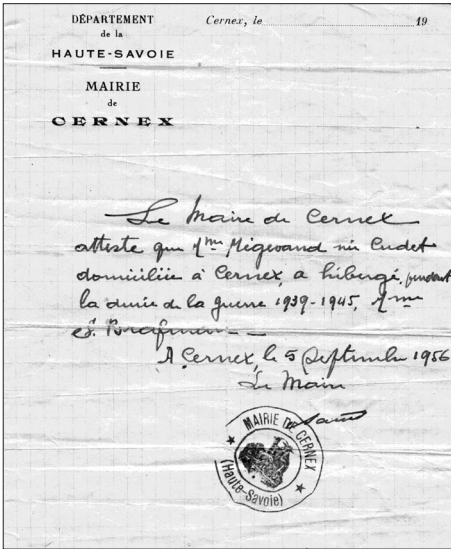 DÉPARTEMENT
de la
HAUTE-SAVOIE
MAIRIE
de
CERNEX
Cernex, le 19
Le Maire de Cernex
atteste que Mme Mégevand née Cudet
domiciliée à Cernex, a hébergé, pendant
la durée de la guerre 1939-1945, Mme
S. Brafman
A Cernex, le 5 Septembre 1956
Le Maire
MAIRIE DE CERNEX
(Haute-Savoie)